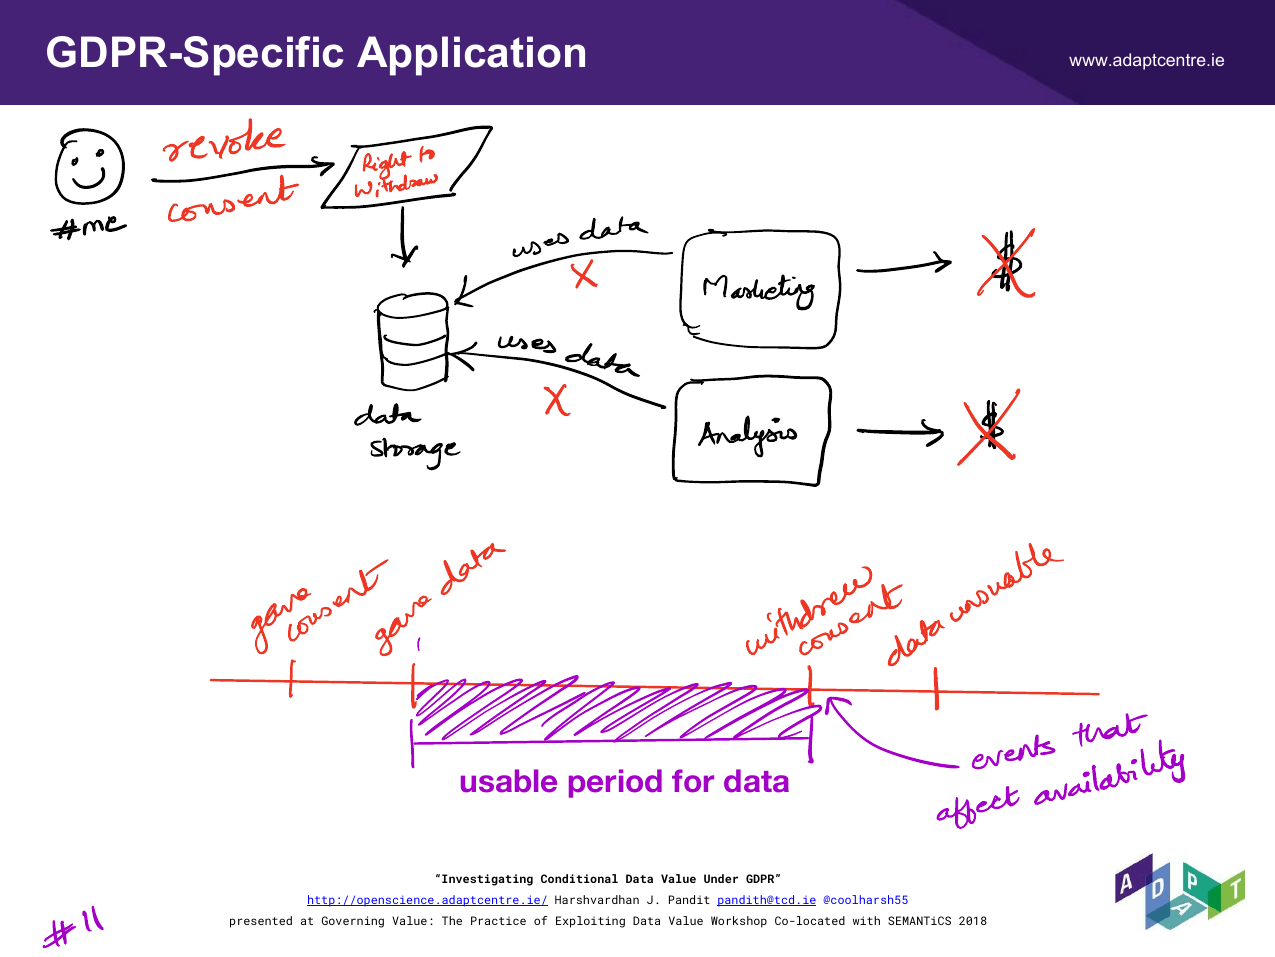 GDPR-Specific Application
www.adaptcentre.ie
revoke
consent
Right to
Withdraw
#me
uses data
X
Marketing
$
uses data
X
Analysis
$
data
storage
gave
consent
gave data
withdrew
consent
data unusuable
usable period for data
events that
affect availability
“Investigating Conditional Data Value Under GDPR”
http://openscience.adaptcentre.ie/ Harshvardhan J. Pandit pandith@tcd.ie @coolharsh55
presented at Governing Value: The Practice of Exploiting Data Value Workshop Co-located with SEMANTiCS 2018
#11
ADAPT